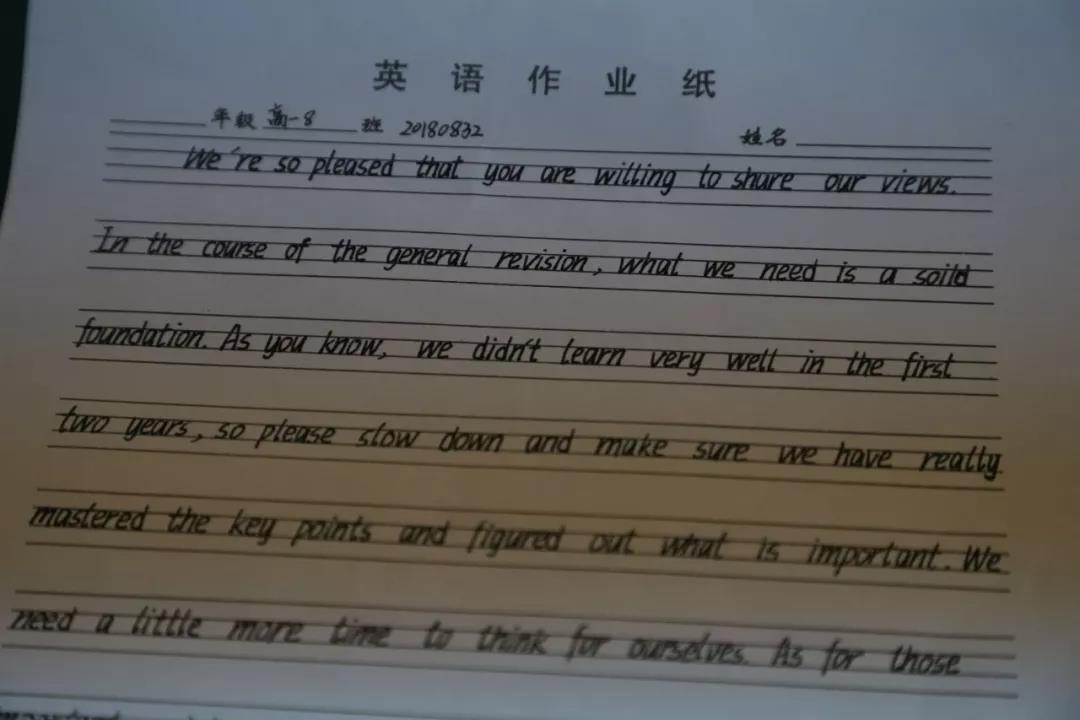 英语作业纸
年级 高一8 班 20180832 姓名
We're so pleased that you are willing to share our views.
In the course of the general revision, what we need is a soild
foundation. As you know, we didn't learn very well in the first
two years, so please slow down and make sure we have really
mastered the key points and figured out what is important. We
need a little more time to think for ourselves. As for those